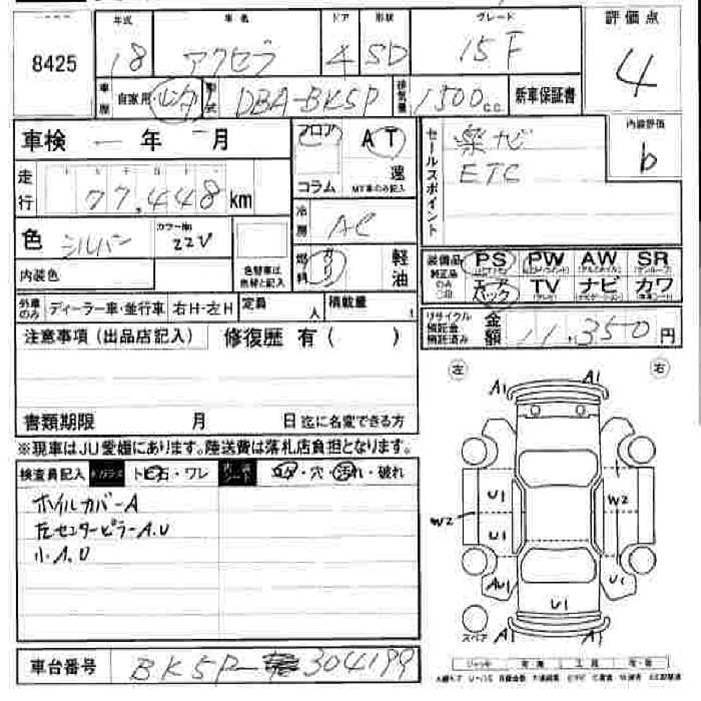 年式 車名 ドア 形状 グレード 評価点
8425 18 アクセラ 4 SD 15F 4
車歴 自家用・レンタ 型式 DBA-BK5P 排気量 1500cc 新車保証書
車検 ー年 ー月 フロア コラム AT 速 MT車のみ記入
セールスポイント 楽ナビ
ETC
内装評価 b
走行 77,448km
冷房 AC
色 シルバー カラーNo. 22V
内装色 色替車は色替と記入
燃料 ガソリン 軽油
装備品 純正品のみ○印 PS PW AW SR
エアバック TV ナビ カワ
外車のみ ディーラー車・並行車 右H・左H 定員 人 積載量 t
リサイクル預託金預託済み 金額 11,350円
注意事項（出品店記入） 修復歴 有（ ）
書類期限 月 日迄に名変できる方
※現車はJU愛媛にあります。陸送費は落札店負担となります。
検査員記入 Fガラス トビ石・ワレ 内装シート コゲ・穴・汚れ・破れ
ホイルカバーA
左センターピラーA.U
小A.U
左 右
A1 A1
U1 W2
W2 U1
AU1 U1
U1
スペア A1 A1
車台番号 BK5P-304199
ジャッキ 工具